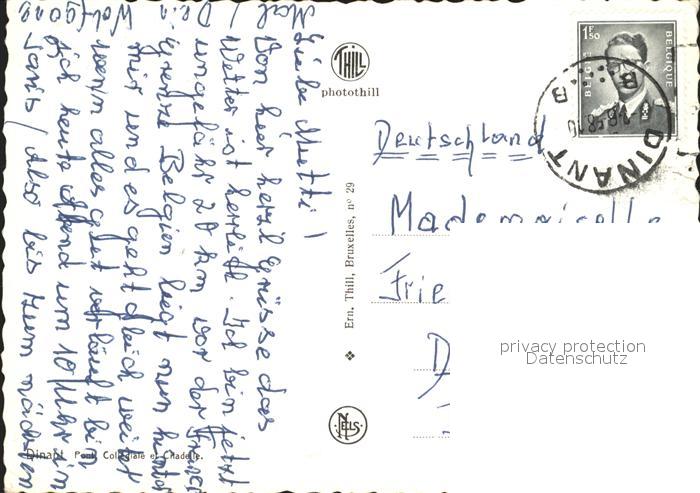 Liebe Mutti!
Von hier herzl. Grüsse das
Wetter ist herrlich. Ich bin jetzt
ungefähr 20 km vor der Franz.
Grenze Belgien liegt nun hinter
mir und es geht gleich weiter
wenn alles gut verläuft bin
ich heute Abend um 10 Uhr in
Paris / Also bis zum nächsten
Mal / Dein Wolfgang
THILL
photothill
Ern. Thill, Bruxelles, nº 29
NELS
Dinant. Pont, Collégiale et Citadelle.
1F50
BELGIE
BELGIQUE
DINANT
B
B
Deutschland
Mademoiselle
Frie
D
privacy protection
Datenschutz